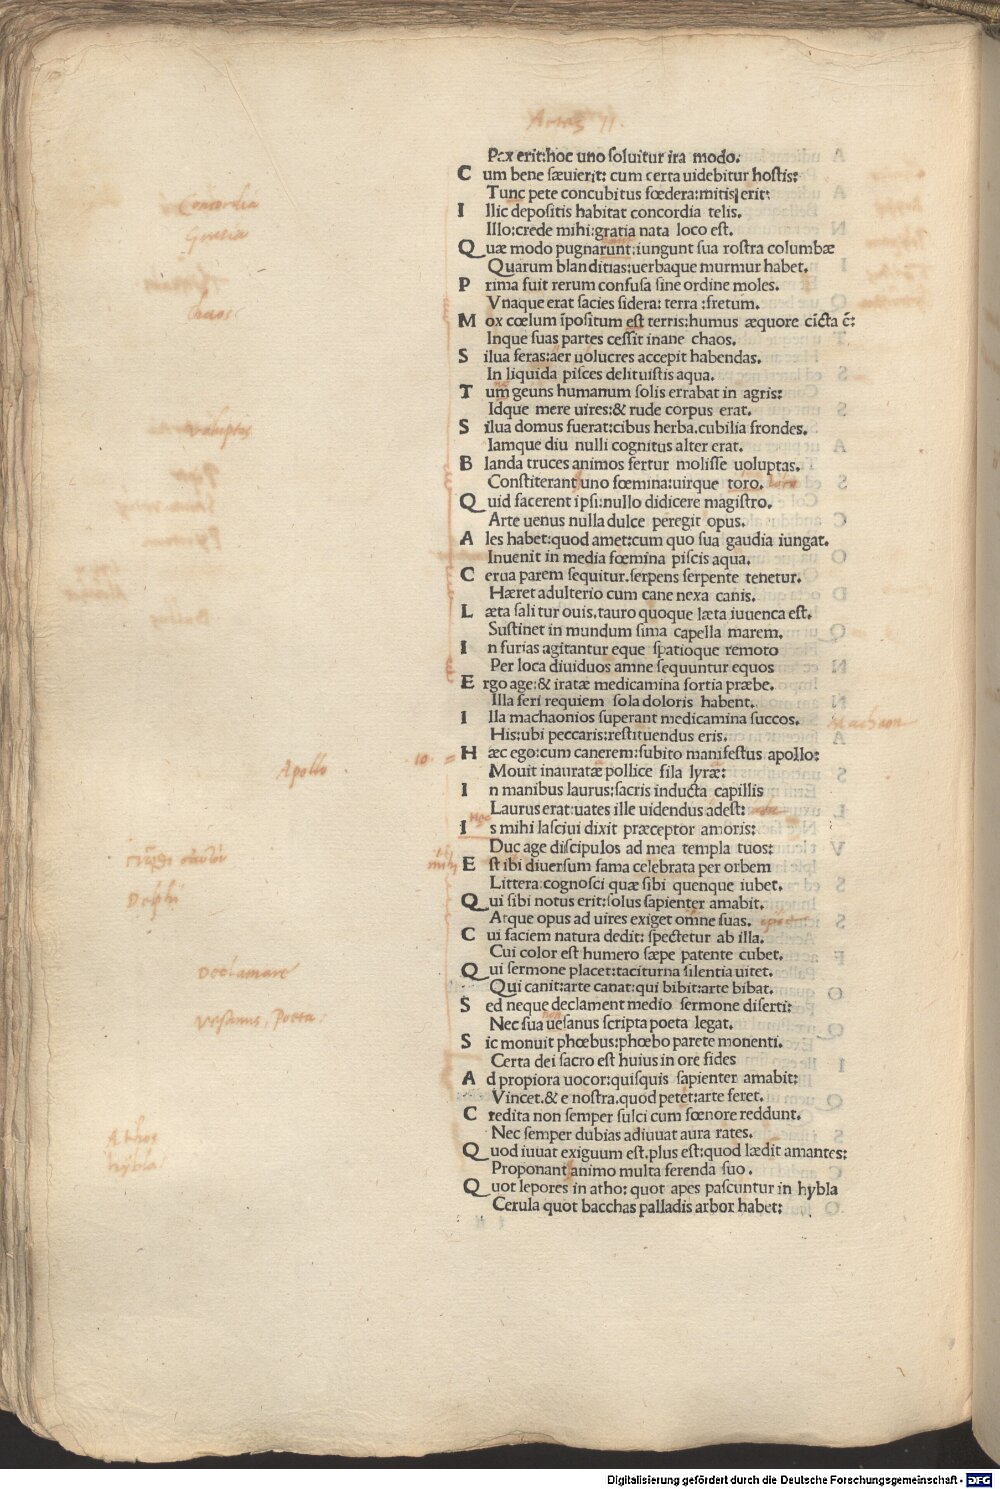 Pax erit:hoc uno soluitur ira modo.
C um bene sæuierit: cum certa uidebitur hostis:
Tunc pete concubitus fœdera:mitis erit:
I llic depositis habitat concordia telis.
Illo:crede mihi:gratia nata loco est.
Q uæ modo pugnarunt:iungunt sua rostra columbæ
Quarum blanditias:uerbaque murmur habet.
P rima fuit rerum confusa sine ordine moles.
Vnaque erat facies sidera: terra :fretum.
M ox cœlum īpositum est terris:humus æquore cīcta ē:
Inque suas partes cessit inane chaos.
S ilua feras:aer uolucres accepit habendas.
In liquida pisces delituistis aqua.
T um geuns humanum solis errabat in agris:
Idque mere uires:& rude corpus erat.
S ilua domus fuerat:cibus herba.cubilia frondes.
Iamque diu nulli cognitus alter erat.
B landa truces animos fertur molisse uoluptas.
Constiterant uno fœmina:uirque toro.
Q uid facerent ipsi:nullo didicere magistro.
Arte uenus nulla dulce peregit opus.
A les habet:quod amet:cum quo sua gaudia iungat.
Inuenit in media fœmina piscis aqua.
C erua parem sequitur.serpens serpente tenetur.
Hæret adulterio cum cane nexa canis.
L æta salitur ouis.tauro quoque læta iuuenca est.
Sustinet in mundum sima capella marem.
I n furias agitantur eque spatioque remoto
Per loca diuiduos amne sequuntur equos
E rgo age:& iratæ medicamina fortia præbe.
Illa feri requiem sola doloris habent.
I lla machaonios superant medicamina succos.
Machaon
His:ubi peccaris:restituendus eris.
H æc ego:cum canerem:subito manifestus apollo:
Apollo
10.
Mouit inauratæ pollice fila lyræ:
I n manibus laurus:sacris inducta capillis
Laurus erat:uates ille uidendus adest:
I s mihi lasciui dixit præceptor amoris:
Duc age discipulos ad mea templa tuos:
E st ibi diuersum fama celebrata per orbem
Littera:cognosci quæ sibi quenque iubet.
Delphi
Q ui sibi notus erit:solus sapienter amabit.
Atque opus ad uires exiget omne suas.
C ui faciem natura dedit: spectetur ab illa.
Cui color est humero sæpe patente cubet.
Q ui sermone placet:taciturna silentia uitet.
Declamare
Qui canit:arte canat:qui bibit:arte bibat.
S ed neque declament medio sermone diserti:
Nec sua uesanus scripta poeta legat.
Vesanus, Poeta.
S ic monuit phœbus:phœbo parete monenti.
Certa dei sacro est huius in ore fides
A d propiora uocor:quisquis sapienter amabit:
Vincet.& e nostra.quod petet:arte feret.
C redita non semper sulci cum fœnore reddunt.
Nec semper dubias adiuuat aura rates.
Athos
Q uod iuuat exiguum est.plus est:quod lædit amantes:
hybla
Proponant animo multa ferenda suo.
Q uot lepores in atho: quot apes pascuntur in hybla
Cerula quot bacchas palladis arbor habet:
Concordia
Gratia
Chaos
Voluptas
Digitalisierung gefördert durch die Deutsche Forschungsgemeinschaft - DFG